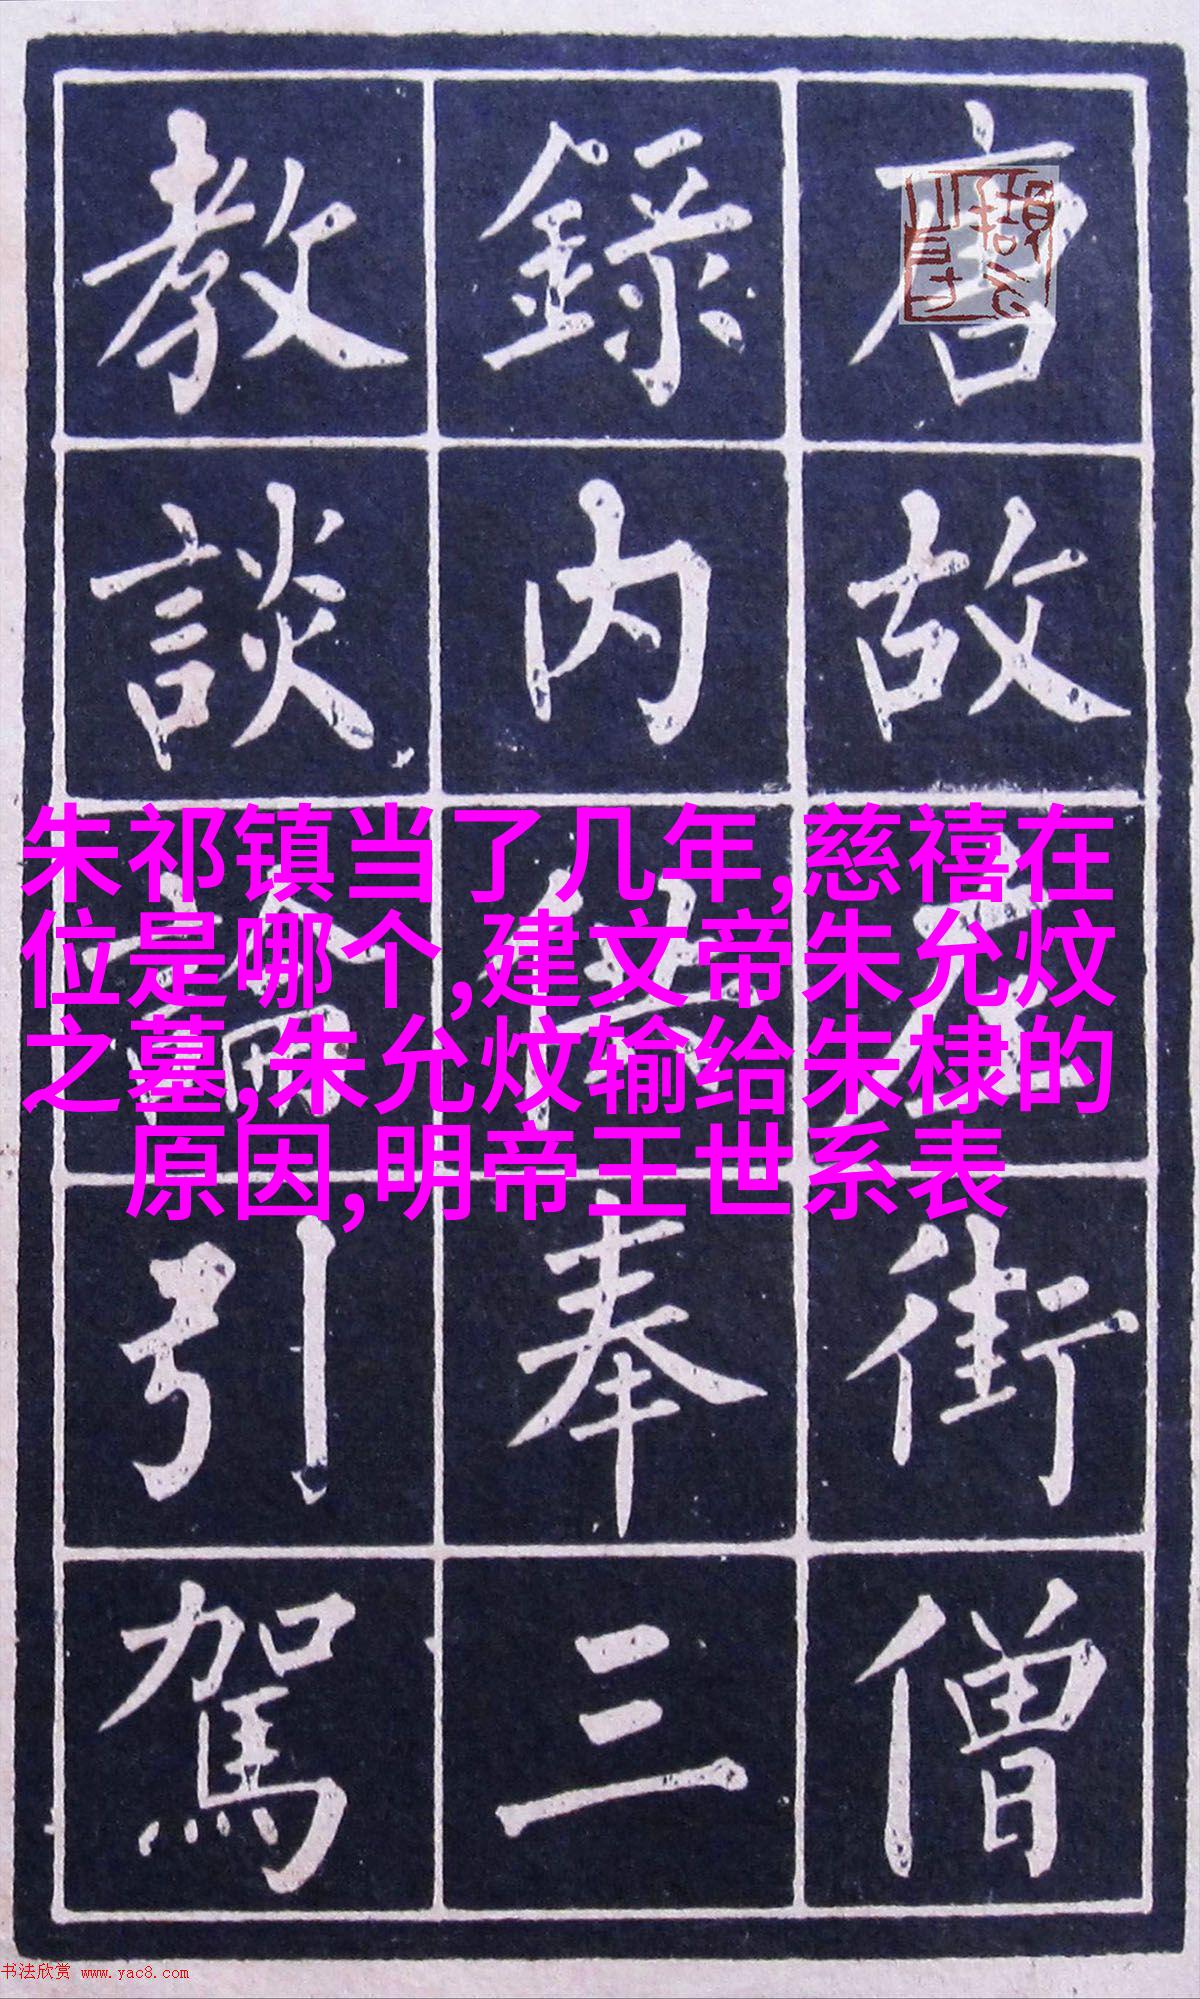 唐故左街僧
錄內供奉三
教談論引駕
朱祁镇当了几年,慈禧在
位是哪个,建文帝朱允炆
之墓,朱允炆输给朱棣的
原因,明帝王世系表
书法欣赏 www.yac8.com